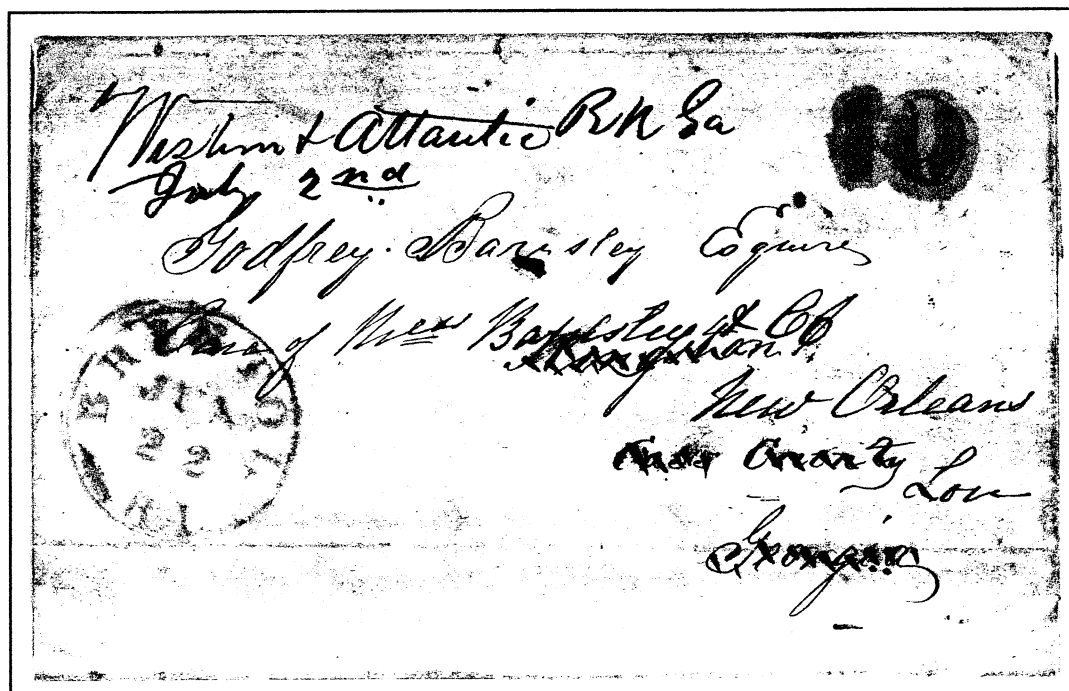 Western & Atlantic R R Ga
10
July 2nd
Godfrey. Barnsley Esquire
Care of Mess Barnsley & Co
Kingston
New Orleans
Cass County
Lou
Georgia
BRISTOL
22